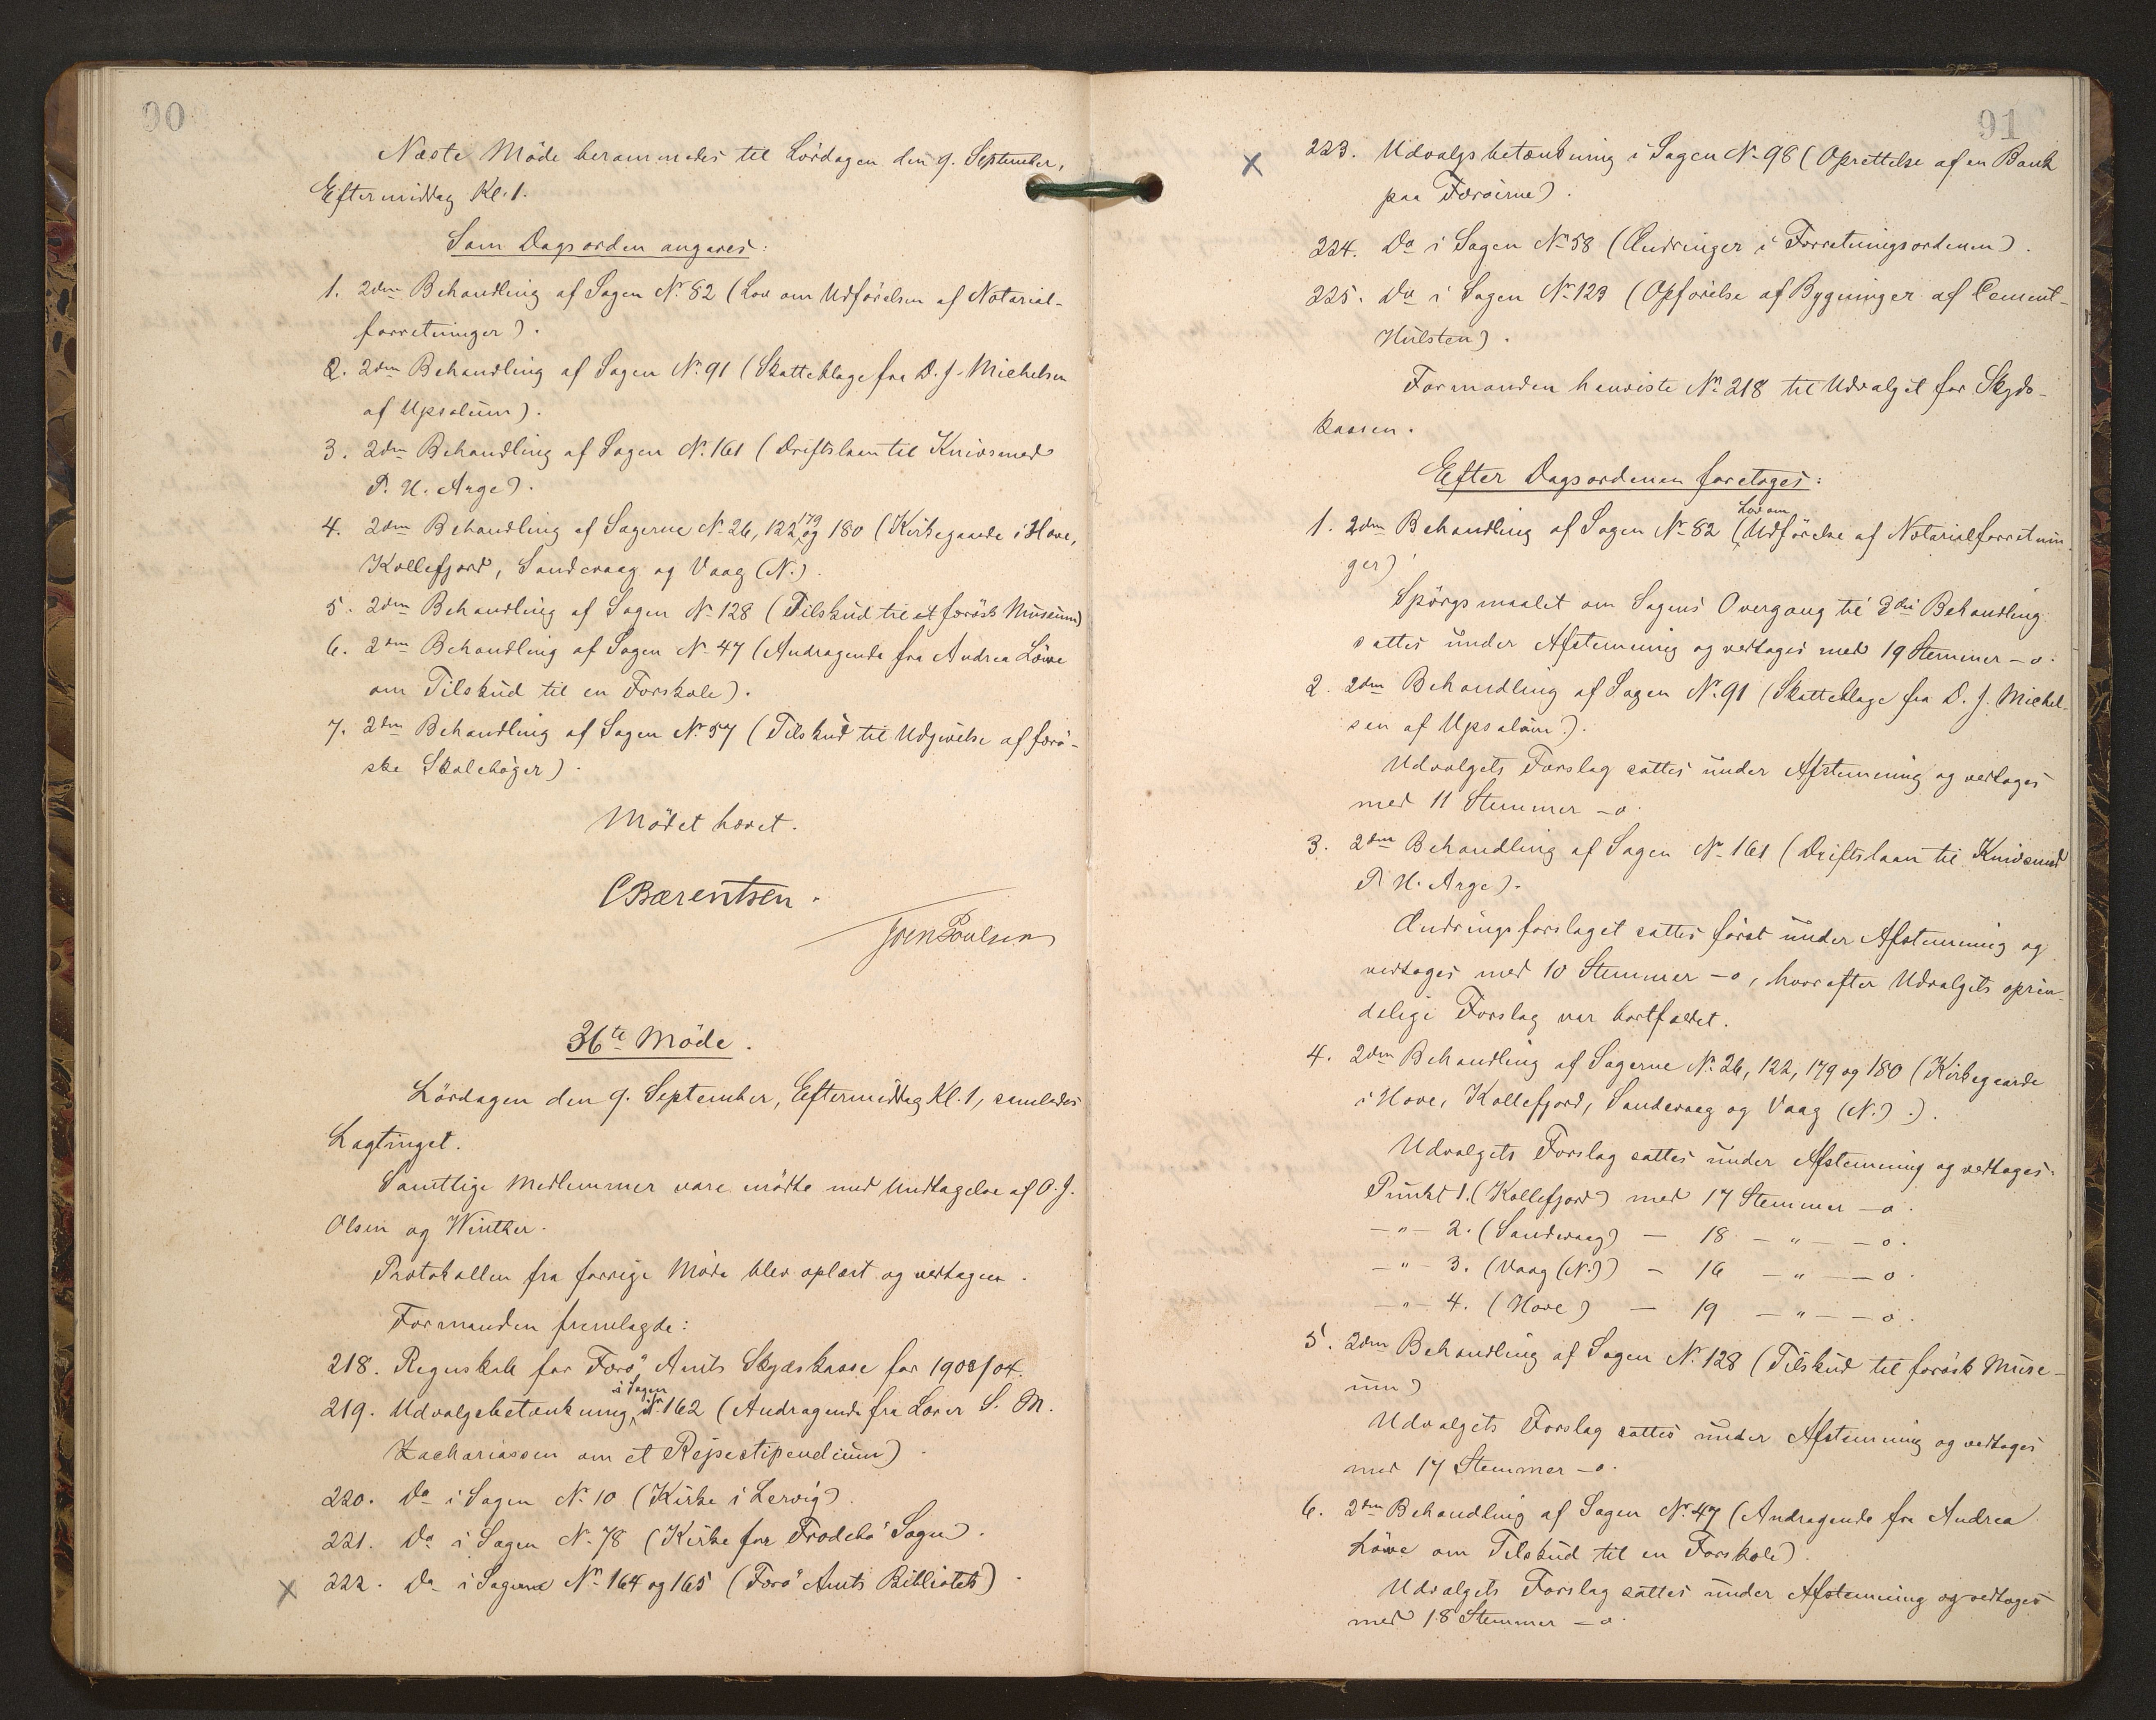 90
Næste Møde berammedes til Lördagen den 9. September,
Eftermiddag Kl. 1.
Som Dagsorden angaves:
1. 2den Behandling af Sagen No. 82 (Lov om Udförelsen af Notarial-
forretninger).
2. 2den Behandling af Sagen No. 91 (Skatteklage fra D. J. Michelsen
af Upsalum).
3. 2den Behandling af Sagen No. 161 (Driftslaan til Knivsmed
P. H. Arge).
4. 2den Behandling af Sagerne No. 26, 122, 179 og 180 (Kirkegaarde i Hove,
Kollefjord, Sandevaag og Vaag (N.)
5. 2den Behandling af Sagen No. 128 (Tilskud til et færösk Museum)
6. 2den Behandling af Sagen No. 47 (Andragende fra Andrea Löwe
om Tilskud til en Forskole).
7. 2den Behandling af Sagen No. 57 (Tilskud til Udgivelse af færö-
ske Skoleböger).
Mödet hævet.
CBærentsen.
Joen Poulsen
36te Möde.
Lördagen den 9. September, Eftermiddag Kl. 1, samledes
Lagtinget.
Samtlige Medlemmer vare mödte med Undtagelse af O. J.
Olsen og Winther.
Protokollen fra forrige Möde blev oplæst og vedtagen.
Formanden fremlagde:
218. Regnskab for Færö Amts Skydskasse for 1903/04.
219. Udvalgsbetænkning i Sagen No. 162 (Andragende fra Lærer S. M.
Zachariassen om et Rejsestipendium)
220. Do i Sagen No. 10 (Kirke i Lervig)
221. Do i Sagen No. 78 (Kirke for Frodebö Sogn).
× 222. Do i Sagerne No. 164 og 165 (Færö Amts Bibliotek)
91
× 223. Udvalgsbetænkning i Sagen No. 98 (Oprettelse af en Bank
paa Færöerne).
224. Do i Sagen No. 58 (Ændringer i Forretningsordenen).
225. Do i Sagen No. 123 (Opförelse af Bygninger af Cement-
Hulsten).
Formanden henviste No. 218 til Udvalget for Skyds-
kassen.
Efter Dagsordenen foretoges:
1. 2den Behandling af Sagen No. 82 (Lov om Udförelse af Notarialforretnin-
ger)
Spörgsmaalet om Sagens Overgang til 3die Behandling
sattes under Afstemning og vedtoges med 19 Stemmer – o.
2. 2den Behandling af Sagen No. 91 (Skatteklage fra D. J. Michel-
sen af Upsalum.).
Udvalgets Forslag sattes under Afstemning og vedtoges
med 11 Stemmer – o.
3. 2den Behandling af Sagen No. 161 (Driftslaan til Knivsmed
P. H. Arge).
Ændringsforslaget sattes först under Afstemning og
vedtoges med 10 Stemmer – o, hvorefter Udvalgets oprin-
delige Forslag var bortfaldet.
4. 2den Behandling af Sagerne No. 26, 122, 179 og 180 (Kirkegaarde
i Hove, Kollefjord, Sandevaag og Vaag (N.) .).
Udvalgets Forslag sattes under Afstemning og vedtoges:
Punkt 1. (Kollefjord) med 17 Stemmer – o.
– " – 2. (Sandevaag) – 18 – " – – o.
– " – 3. (Vaag (N.)) – 16 – " – – o.
– " – 4. (Hove) – 19 – " – – o.
5. 2den Behandling af Sagen No. 128 (Tilskud til færösk Muse-
um)
Udvalgets Forslag sattes under Afstemning og vedtoges
med 17 Stemmer – o.
6. 2den Behandling af Sagen No. 47 (Andragende fra Andrea
Löwe om Tilskud til en Forskole).
Udvalgets Forslag sattes under Afstemning og vedtoges
med 18 Stemmer – o.